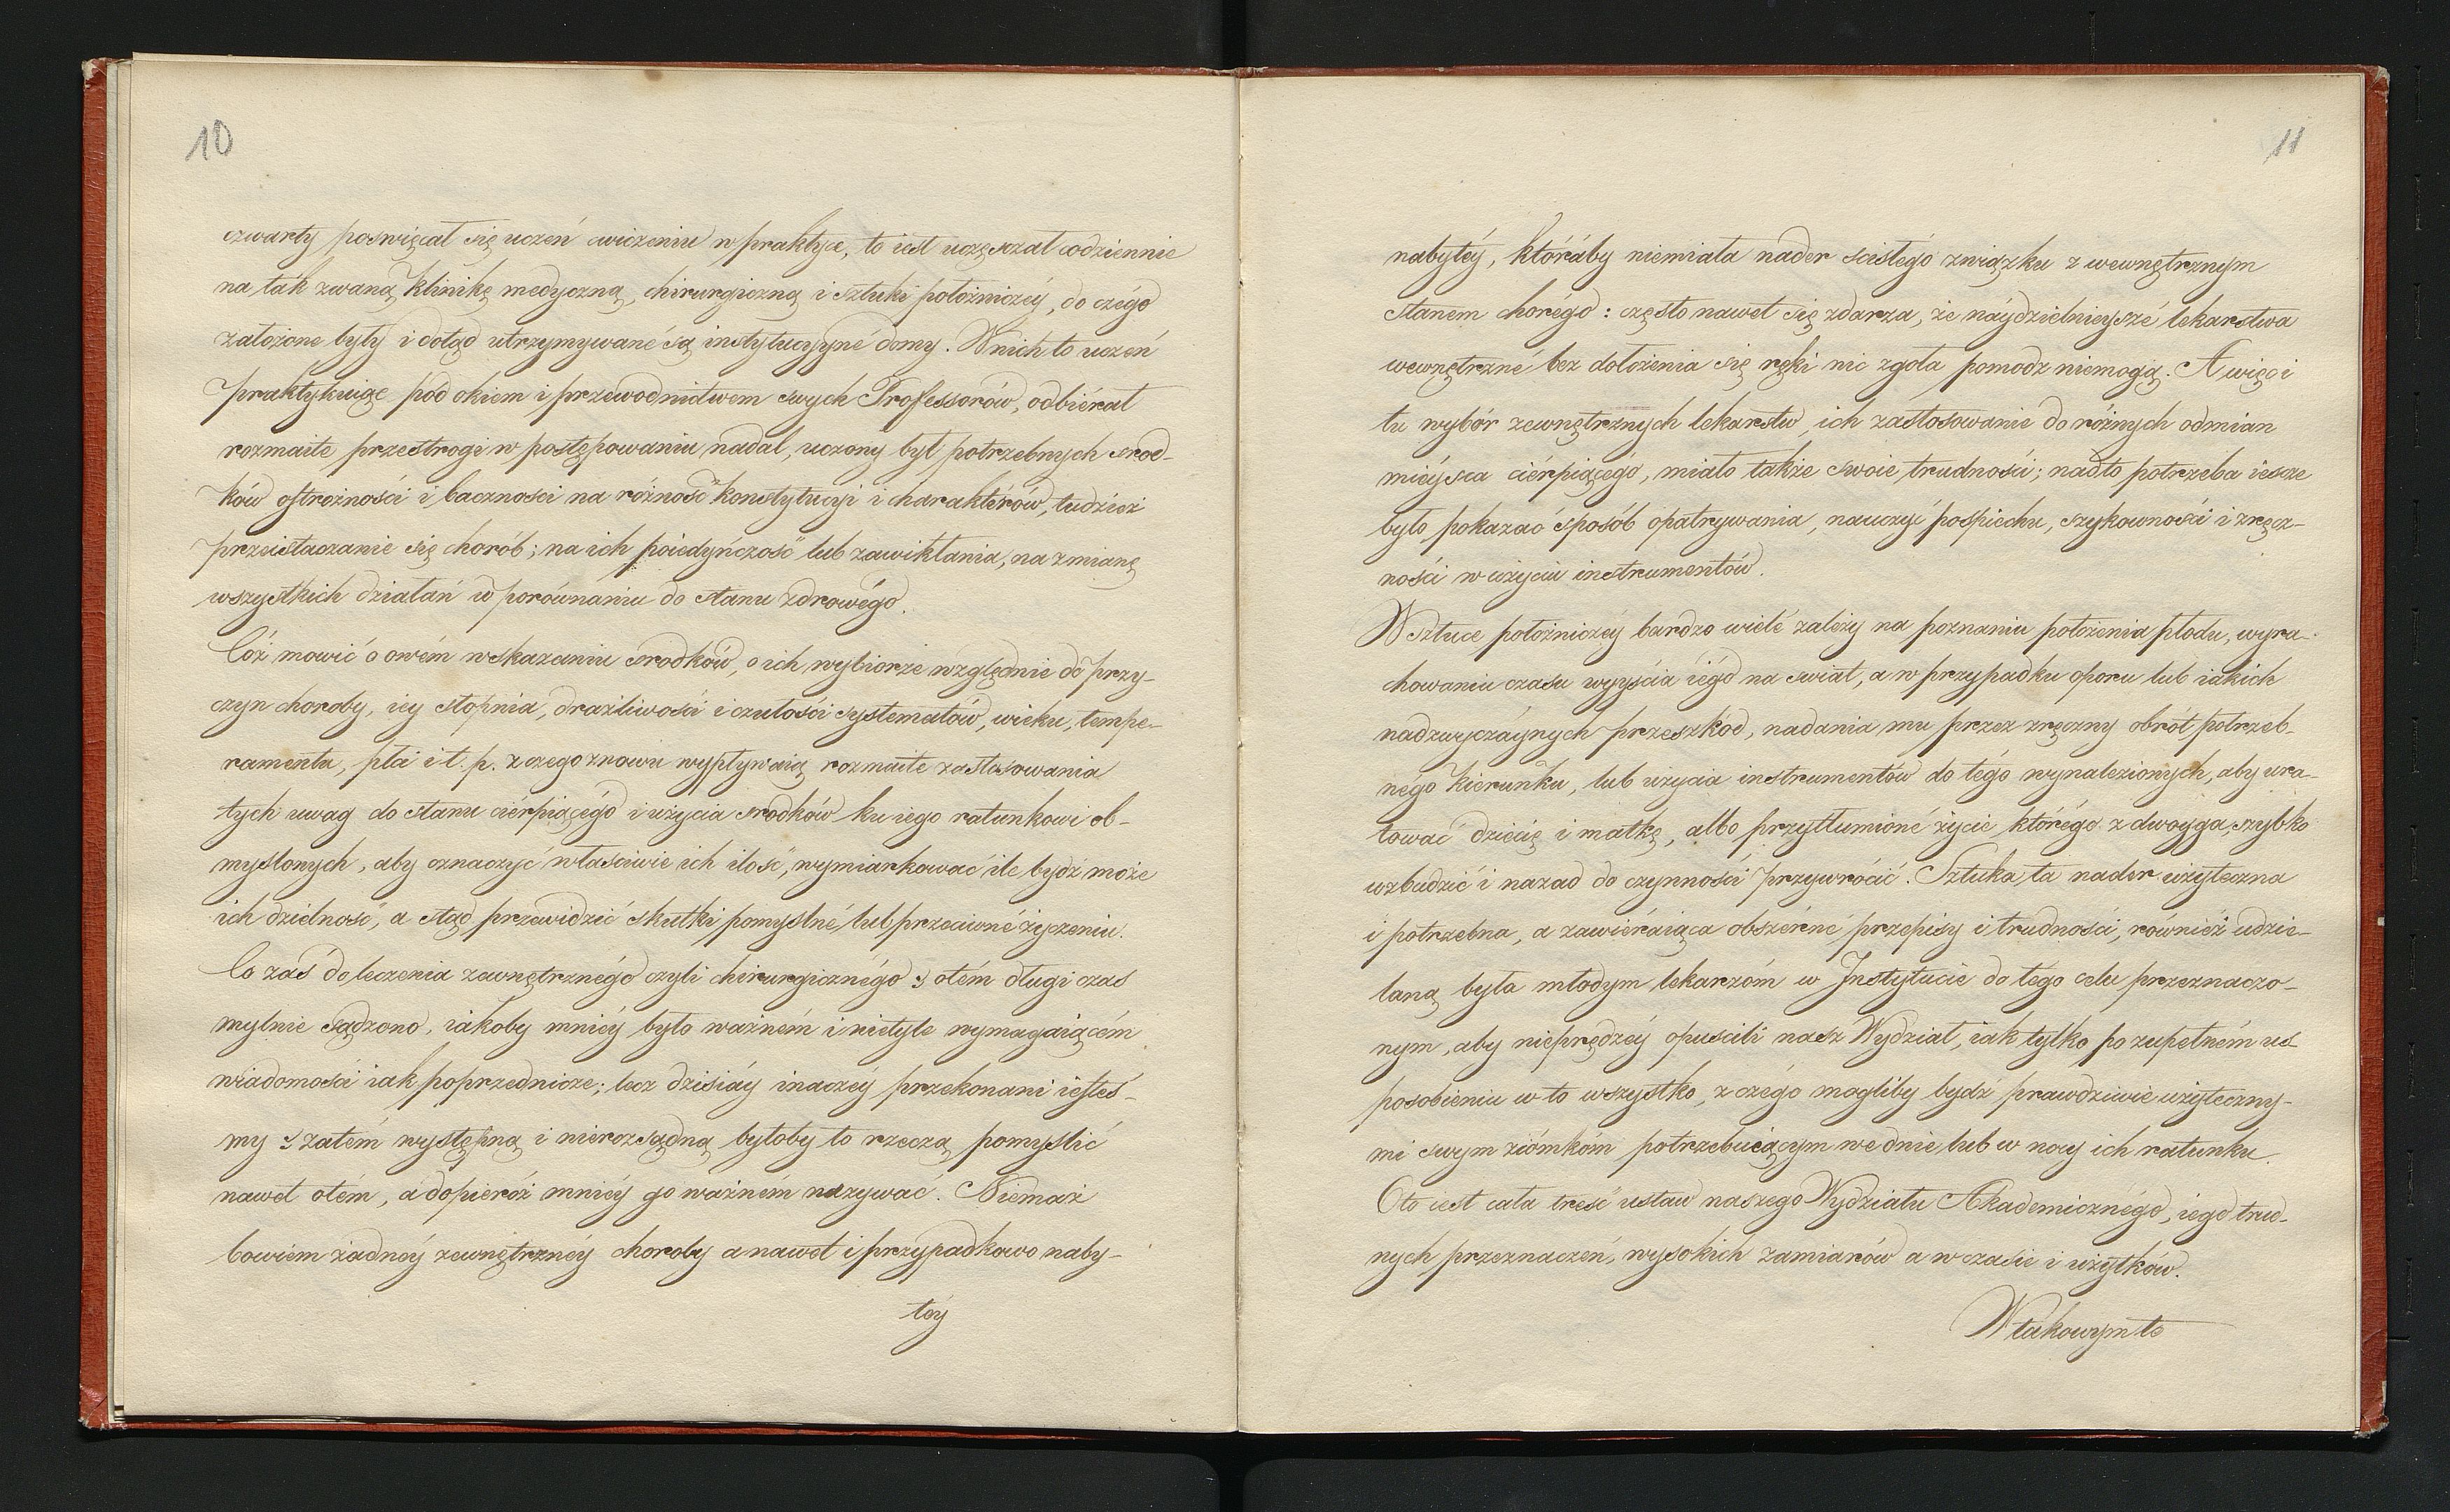 10
czwarty poswięcał się uczeń cwiczeniu w praktyce, to iest uczęszczał codziennie
na ták zwaną Klinikę medyczną, chirurgiczną i sztuki położniczéy, do czégo
założone były i dotąd utrzymywané są instytucyyné domy. W nich to uczeń
praktykuiąc pod okiem i przewodnictwem swych Professorów, odbiérał
rozmaite przestrogi w postępowaniu nadal, uczony był potrzebnych srod-
ków ostrożności i baczności na różność konstytucyi i charaktérów, tudzież
przeistaczanie się chorób; na ich poiedyńczość lub zawikłania, na zmianę
wszystkich działań w porównaniu do stanu zdrowégo.
Cóż mowić o owém wskazaniu srodków, o ich wybiorze względnie do przy-
czyn choroby, iey stopnia, drażliwości i czułości systematów, wieku, tempe-
ramentu, płci i t. p. z czego znowu wypływaią rozmaite zastosowania
tych uwag do stanu ciérpiącégo i użycia srodków ku iego ratunkowi ob-
myslonych, aby oznaczyć właściwie ich ilość, wymiarkować ile bydź może
ich dzielność, a stąd przewidzić skutki pomyslné lub przeciwné życzeniu.
Co zaś do leczenia zewnętrznégo czyli chirurgicznégo; o tém długi czas
mylnie sądzono, iakoby mniéy było ważném i nietyle wymagaiącém
wiadomości iak poprzednicze; lecz dzisiáy inaczéy przekonani iesteś-
my; zatém występną i nierozsądną byłoby to rzeczą pomyslić
nawet o tém, a dopiéróż mniéy go ważném nazywać. Niemasz
bowiem żadnéy zewnętrznéy choroby a nawet i przypadkowo naby-
téy
11
nabytéy, któráby niemiała nader scisłégo związku z wewnętrznym
stanem chorégo: często nawet się zdarza, że náydzielnieyszé lekarstwa
wewnętrzné bez dołożenia się ręki nic zgoła pomodz niemogą. A więc i
tu wybór zewnętrznych lekarstw, ich zastosowanie do różnych odmian
mieysca ciérpiącégo, miało także swoie trudności; nadto potrzeba iescze
było pokazać sposób opatrywania, nauczyć pospiechu, szykowności i zręcz-
ności w użyciu instrumentów.
W Sztuce położniczéy bardzo wielé zależy na poznaniu położenia płodu, wyra-
chowaniu czasu wyyścia iégo na swiat, a w przypadku oporu lub iakich
nadzwyczáynych przeszkod, nadania mu przez zręczny obrót potrzeb-
négo kierunku, lub użycia instrumentów do tégo wynalezionych, aby ura-
tować dziecię i matkę, albo przytłumioné życie którégo z dwoyga szybko
wzbudzić i nazad do czynności przywrócić. Sztuka ta nader użyteczna
i potrzebna, a zawiéraiąca obszérné przepisy i trudności, również udzie-
laną była młodym lekarzóm w Instytucie do tégo celu przeznaczo-
nym, aby nieprędzéy opuscili nasz Wydział, iak tylko po zupełném us-
posobieniu w to wszystko, z czégo mogliby bydź prawdziwie użyteczny-
mi swym ziómkóm potrzebuiącym we dnie lub w nocy ich ratunku.
Oto iest cała treść ustaw naszego Wydziału Akademicznégo, iego trud-
nych przeznaczeń, wysokich zamiarów a w czasie i użytków.
W takowym to